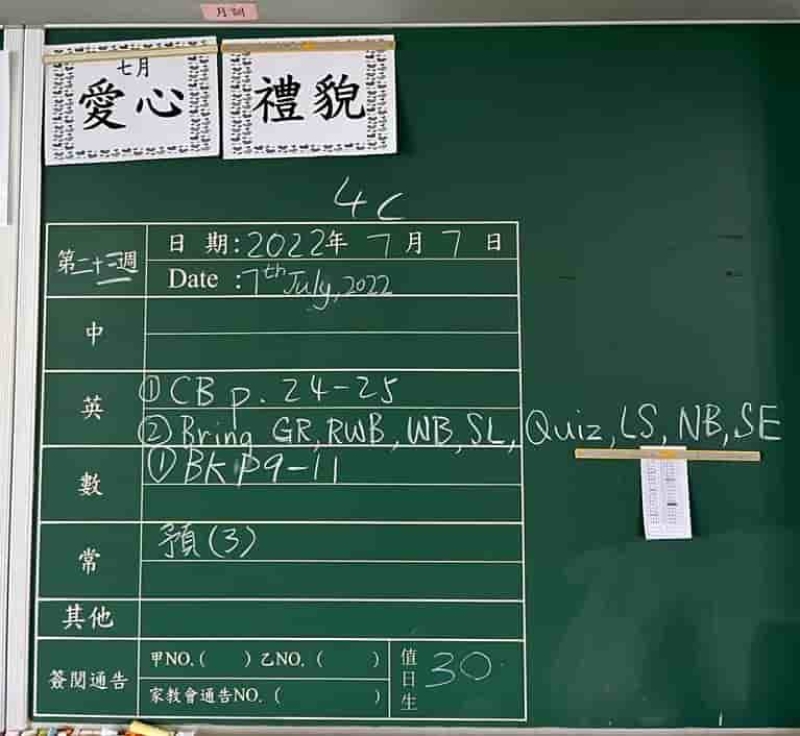 月訓
七月
愛心
禮貌
4C
第二十三週
日 期:2022年 7月 7日
Date :7th July, 2022
中
英
① CB p. 24-25
② Bring GR, RWB, WB, SL, Quiz, LS, NB, SE
數
① BK p9-11
常
預(3)
其他
簽閱通告
甲NO.( ) 乙NO.( )
家教會通告NO.( )
值日生
30